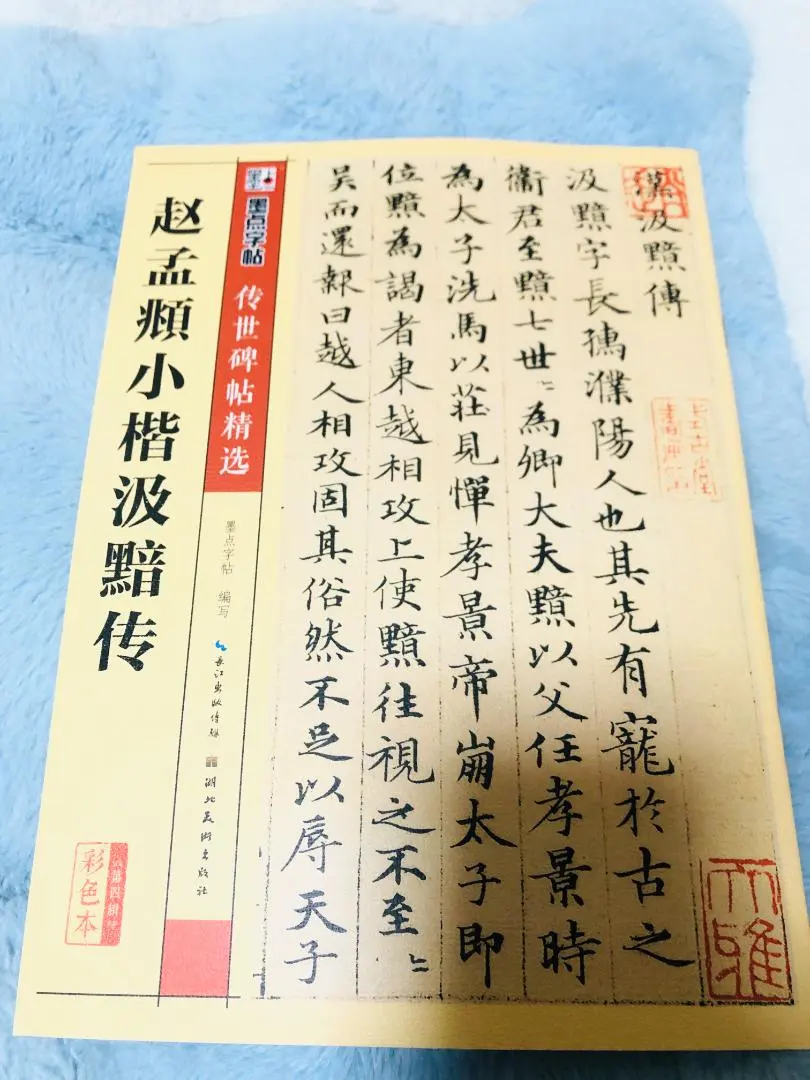 赵孟頫小楷汲黯传
墨点字帖
传世碑帖精选
墨点字帖 编写
长江出版传媒
湖北美术出版社
彩色本
漢汲黯傳
汲黯字長孺濮陽人也其先有寵於古之
衞君至黯七世〻為卿大夫黯以父任孝景時
為太子洗馬以莊見憚孝景帝崩太子即
位黯為謁者東越相攻上使黯往視之不至〻
吴而還報曰越人相攻固其俗然不足以辱天子
大雅